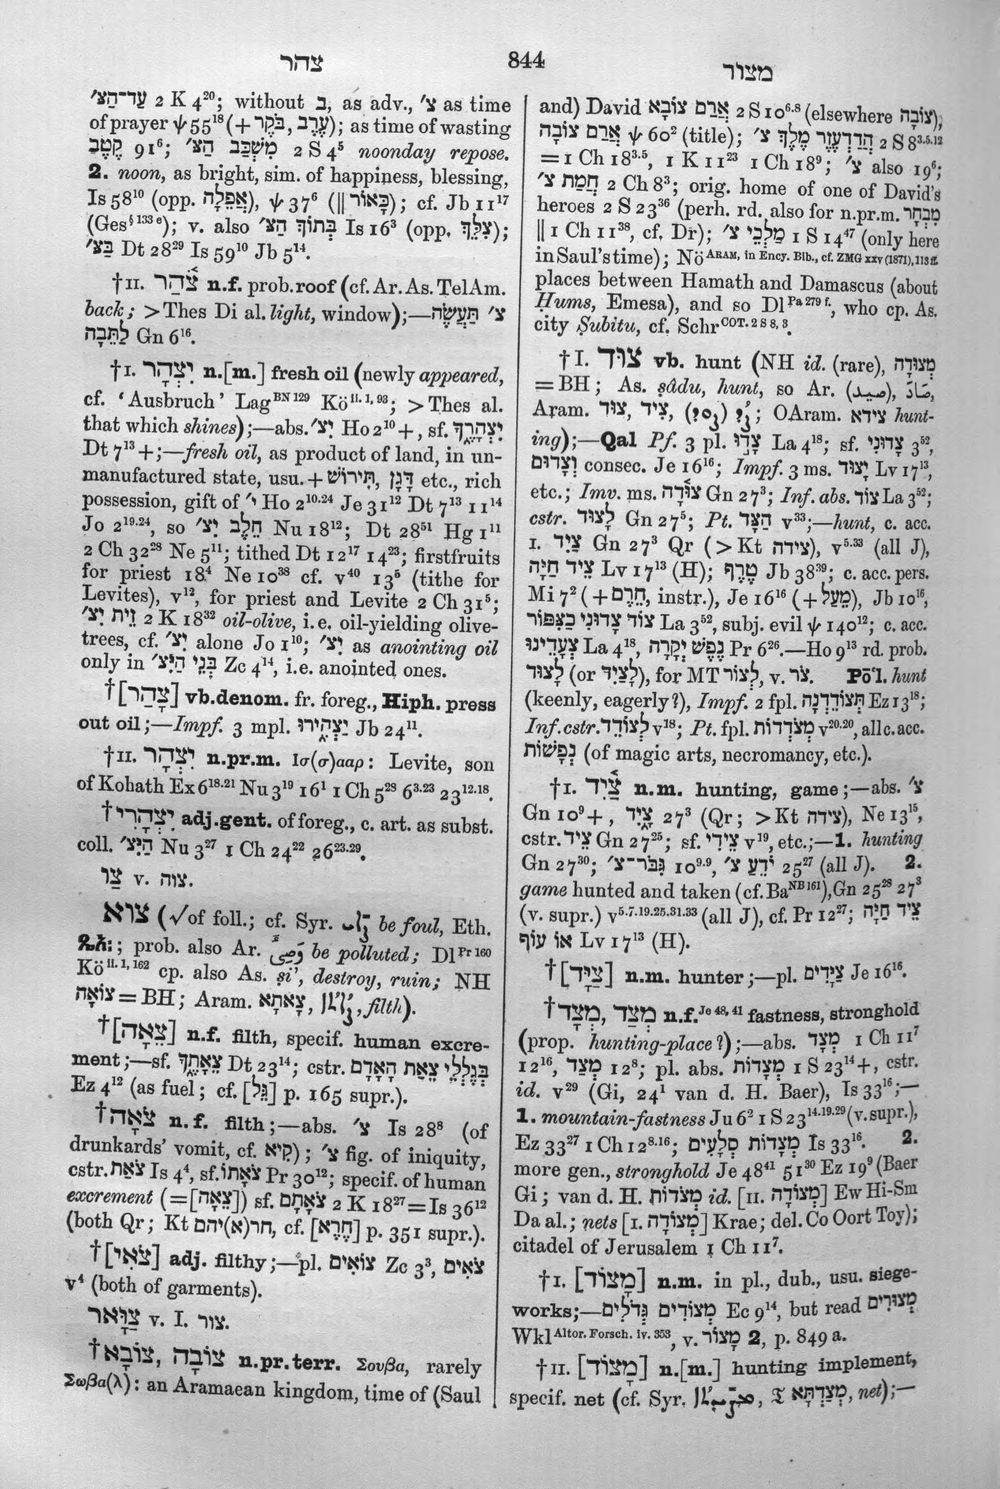 צהר 844 מצור
עַד־הַצּ׳ 2 K 4²⁰; without בְּ, as adv., צ׳ as time
of prayer ψ 55¹⁸ (+ עֶרֶב, בֹּקֶר); as time of wasting
קֶטֶב 91⁶; מִשְׁכַּב הַצּ׳ 2 S 4⁵ noonday repose.
2. noon, as bright, sim. of happiness, blessing,
Is 58¹⁰ (opp. אֲפֵלָה), ψ 37⁶ (‖ כָּאוֹר); cf. Jb 11¹⁷
(Ges§ 133 e); v. also בְּתוֹךְ הַצּ׳ Is 16³ (opp. צִלֵּךְ);
בַּצּ׳ Dt 28²⁹ Is 59¹⁰ Jb 5¹⁴.
†II. צֹ֫הַר n.f. prob. roof (cf. Ar. As. TelAm.
back; > Thes Di al. light, window);—צ׳ תַּעֲשֶׂה
לַתֵּבָה Gn 6¹⁶.
†I. יִצְהָר n.[m.] fresh oil (newly appeared,
cf. ‘Ausbruch’ Lag BN 129 Kö ii. 1, 93; > Thes al.
that which shines);—abs. יִצ׳ Ho 2¹⁰ +, sf. יִצְהָרֶ֫ךָ
Dt 7¹³ +;—fresh oil, as product of land, in un-
manufactured state, usu. + תִּירוֹשׁ, דָּגָן etc., rich
possession, gift of י׳ Ho 2¹⁰·²⁴ Je 31¹² Dt 7¹³ 11¹⁴
Jo 2¹⁹·²⁴, so חֵלֶב יִצ׳ Nu 18¹²; Dt 28⁵¹ Hg 1¹¹
2 Ch 32²⁸ Ne 5¹¹; tithed Dt 12¹⁷ 14²³; firstfruits
for priest 18⁴ Ne 10³⁸ cf. v⁴⁰ 13⁵ (tithe for
Levites), v¹², for priest and Levite 2 Ch 31⁵;
זֵית יִצ׳ 2 K 18³² oil-olive, i.e. oil-yielding olive-
trees, cf. יִצ׳ alone Jo 1¹⁰; יִצ׳ as anointing oil
only in בְּנֵי הַיִּצ׳ Zc 4¹⁴, i.e. anointed ones.
†[צָהַר] vb. denom. fr. foreg., Hiph. press
out oil;—Impf. 3 mpl. יַצְהִ֫ירוּ Jb 24¹¹.
†II. יִצְהָר n.pr.m. Ισ(σ)ααρ: Levite, son
of Kohath Ex 6¹⁸·²¹ Nu 3¹⁹ 16¹ 1 Ch 5²⁸ 6³·²³ 23¹²·¹⁸.
†יִצְהָרִי adj.gent. of foreg., c. art. as subst.
coll. הַיִּצ׳ Nu 3²⁷ 1 Ch 24²² 26²³·²⁹.
צַו v. צוה.
צוא (√ of foll.; cf. Syr. be foul, Eth.
ጼአ:; prob. also Ar. be polluted; Dl Pr 160
Kö ii. 1, 162 cp. also As. ṣi’, destroy, ruin; NH
צוֹאָה = BH; Aram. צָאתָא, filth).
†[צֵאָה] n.f. filth, specif. human excre-
ment;—sf. צֵאָתֶ֫ךָ Dt 23¹⁴; cstr. בְּגֶלְלֵי צֵאַת הָאָדָם
Ez 4¹² (as fuel; cf. [גֵּל] p. 165 supr.).
†צֹאָה n.f. filth;—abs. צ׳ Is 28⁸ (of
drunkards’ vomit, cf. קִיא); צ׳ fig. of iniquity,
cstr. צֹאַת Is 4⁴, sf. צֹאָתוֹ Pr 30¹²; specif. of human
excrement (= [צֵאָה]) sf. צֹאָתָם 2 K 18²⁷ = Is 36¹²
(both Qr; Kt חר(א)יהם, cf. [חֲרָא] p. 351 supr.).
†[צֹאִי] adj. filthy;—pl. צוֹאִים Zc 3³, צֹאִים
v⁴ (both of garments).
צַוָּאר v. I. צור.
†צוֹבָא, צוֹבָה n.pr.terr. Σουβα, rarely
Σωβα(λ): an Aramaean kingdom, time of (Saul
and) David אֲרַם צוֹבָא 2 S 10⁶·⁸ (elsewhere צוֹבָה);
אֲרַם צוֹבָה ψ 60² (title); הֲדַדְעֶזֶר מֶלֶךְ צ׳ 2 S 8³·⁵·¹²
= 1 Ch 18³·⁵, 1 K 11²³ 1 Ch 18⁹; צ׳ also 19⁶;
חֲמַת צ׳ 2 Ch 8³; orig. home of one of David’s
heroes 2 S 23³⁶ (perh. rd. also for n.pr.m. מִבְחָר
‖ 1 Ch 11³⁸, cf. Dr); מַלְכֵי צ׳ 1 S 14⁴⁷ (only here
in Saul’s time); Nö ARAM, in Ency. Bib., cf. ZMG xxv (1871), 113 ff.
places between Hamath and Damascus (about
Ḥums, Emesa), and so Dl Pa 279 f., who cp. As.
city Ṣubitu, cf. Schr COT. 2 S 8, 3.
†I. צוּד vb. hunt (NH id. (rare), מְצוּדָה
= BH; As. ṣâdu, hunt, so Ar. صَادَ, (صيد),
Aram. צוּד, צֵיד, OAram. צידא hunt-
ing);—Qal Pf. 3 pl. צָדוּ La 4¹⁸; sf. צָדוּנִי 3⁵²,
וְצָדוּם consec. Je 16¹⁶; Impf. 3 ms. יָצוּד Lv 17¹³,
etc.; Imv. ms. צ֫וּדָה Gn 27³; Inf. abs. צוֹד La 3⁵²;
cstr. לָצוּד Gn 27⁵; Pt. הַצָּד v³³;—hunt, c. acc.
1. צַיִד Gn 27³ Qr (> Kt צידה), v⁵·³³ (all J),
צֵיד חַיָּה Lv 17¹³ (H); טֶרֶף Jb 38³⁹; c. acc. pers.
Mi 7² (+ חֵרֶם, instr.), Je 16¹⁶ (+ מֵעַל), Jb 10¹⁶,
צוֹד צָדוּנִי כַּצִּפּוֹר La 3⁵², subj. evil ψ 140¹²; c. acc.
צְעָדֵינוּ La 4¹⁸, נֶפֶשׁ יְקָרָה Pr 6²⁶.—Ho 9¹³ rd. prob.
לָצוּד (or לְצַיִד), for MT לְצוֹר, v. צֹר. Pōʽl. hunt
(keenly, eagerly?), Impf. 2 fpl. תְּצוֹדֵדְנָה Ez 13¹⁸;
Inf. cstr. לְצוֹדֵד v¹⁸; Pt. fpl. מְצֹדְדוֹת v²⁰·²⁰, all c. acc.
נְפָשׁוֹת (of magic arts, necromancy, etc.).
†I. צַ֫יִד n.m. hunting, game;—abs. צ׳
Gn 10⁹ +, צָ֑יִד 27³ (Qr; > Kt צידה), Ne 13¹⁵,
cstr. צֵיד Gn 27²⁵; sf. צֵידִי v¹⁹, etc.;—1. hunting
Gn 27³⁰; גִּבֹּר־צ׳ 10⁹·⁹, יֹדֵעַ צ׳ 25²⁷ (all J). 2.
game hunted and taken (cf. Ba NB 161), Gn 25²⁸ 27³
(v. supr.) v⁵·⁷·¹⁹·²⁵·³¹·³³ (all J), cf. Pr 12²⁷; צֵיד חַיָּה
אוֹ עוֹף Lv 17¹³ (H).
†[צַיָּד] n.m. hunter;—pl. צַיָּדִים Je 16¹⁶.
†מְצָד, מְצַד n.f. Je 48, 41 fastness, stronghold
(prop. hunting-place?);—abs. מְצָד 1 Ch 11⁷
12¹⁶, מְצַד 12⁸; pl. abs. מְצָדוֹת 1 S 23¹⁴ +, cstr.
id. v²⁹ (Gi, 24¹ van d. H. Baer), Is 33¹⁶;—
1. mountain-fastness Ju 6² 1 S 23¹⁴·¹⁹·²⁹ (v. supr.),
Ez 33²⁷ 1 Ch 12⁸·¹⁶; מְצָדוֹת סְלָעִים Is 33¹⁶. 2.
more gen., stronghold Je 48⁴¹ 51³⁰ Ez 19⁹ (Baer
Gi; van d. H. מְצֹדוֹת id. [II. מְצוֹדָה] Ew Hi-Sm
Da al.; nets [I. מְצוֹדָה] Krae; del. Co Oort Toy);
citadel of Jerusalem 1 Ch 11⁷.
†I. [מָצוֹד] n.m. in pl., dub., usu. siege-
works;—מְצוֹדִים גְּדֹלִים Ec 9¹⁴, but read מְצוּרִים
Wkl Altor. Forsch. iv. 353, v. מָצוֹר 2, p. 849 a.
†II. [מָצוֹד] n.[m.] hunting implement,
specif. net (cf. Syr., 𝔗 מְצַדְתָּא, net);—